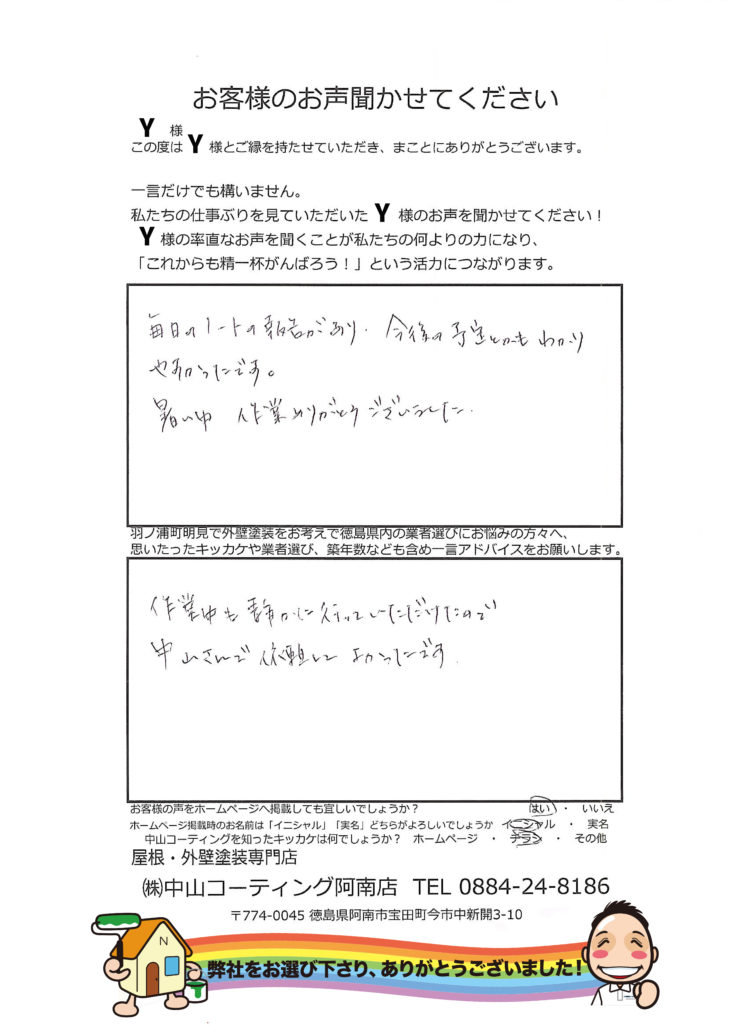 お客様のお声聞かせてください
Y 様
この度は Y 様とご縁を持たせていただき、まことにありがとうございます。
一言だけでも構いません。
私たちの仕事ぶりを見ていただいた Y 様のお声を聞かせてください！
Y 様の率直なお声を聞くことが私たちの何よりの力になり、
「これからも精一杯がんばろう！」という活力につながります。
毎日のノートの報告があり、今後の予定とかもわかり
やすかったです。
暑い中 作業ありがとうございました。
羽ノ浦町明見で外壁塗装をお考えで徳島県内の業者選びにお悩みの方々へ、
思いたったキッカケや業者選び、築年数なども含め一言アドバイスをお願いします。
作業中も静かに行っていただけたので
中山さんで依頼して よかったです。
お客様の声をホームページへ掲載しても宜しいでしょうか？ はい ・ いいえ
ホームページ掲載時のお名前は「イニシャル」「実名」どちらがよろしいでしょうか イニシャル ・ 実名
中山コーティングを知ったキッカケは何でしょうか？ ホームページ ・ チラシ ・ その他
屋根・外壁塗装専門店
㈱中山コーティング阿南店 TEL 0884-24-8186
〒774-0045 徳島県阿南市宝田町今市中新開3-10
N
弊社をお選び下さり、ありがとうございました！